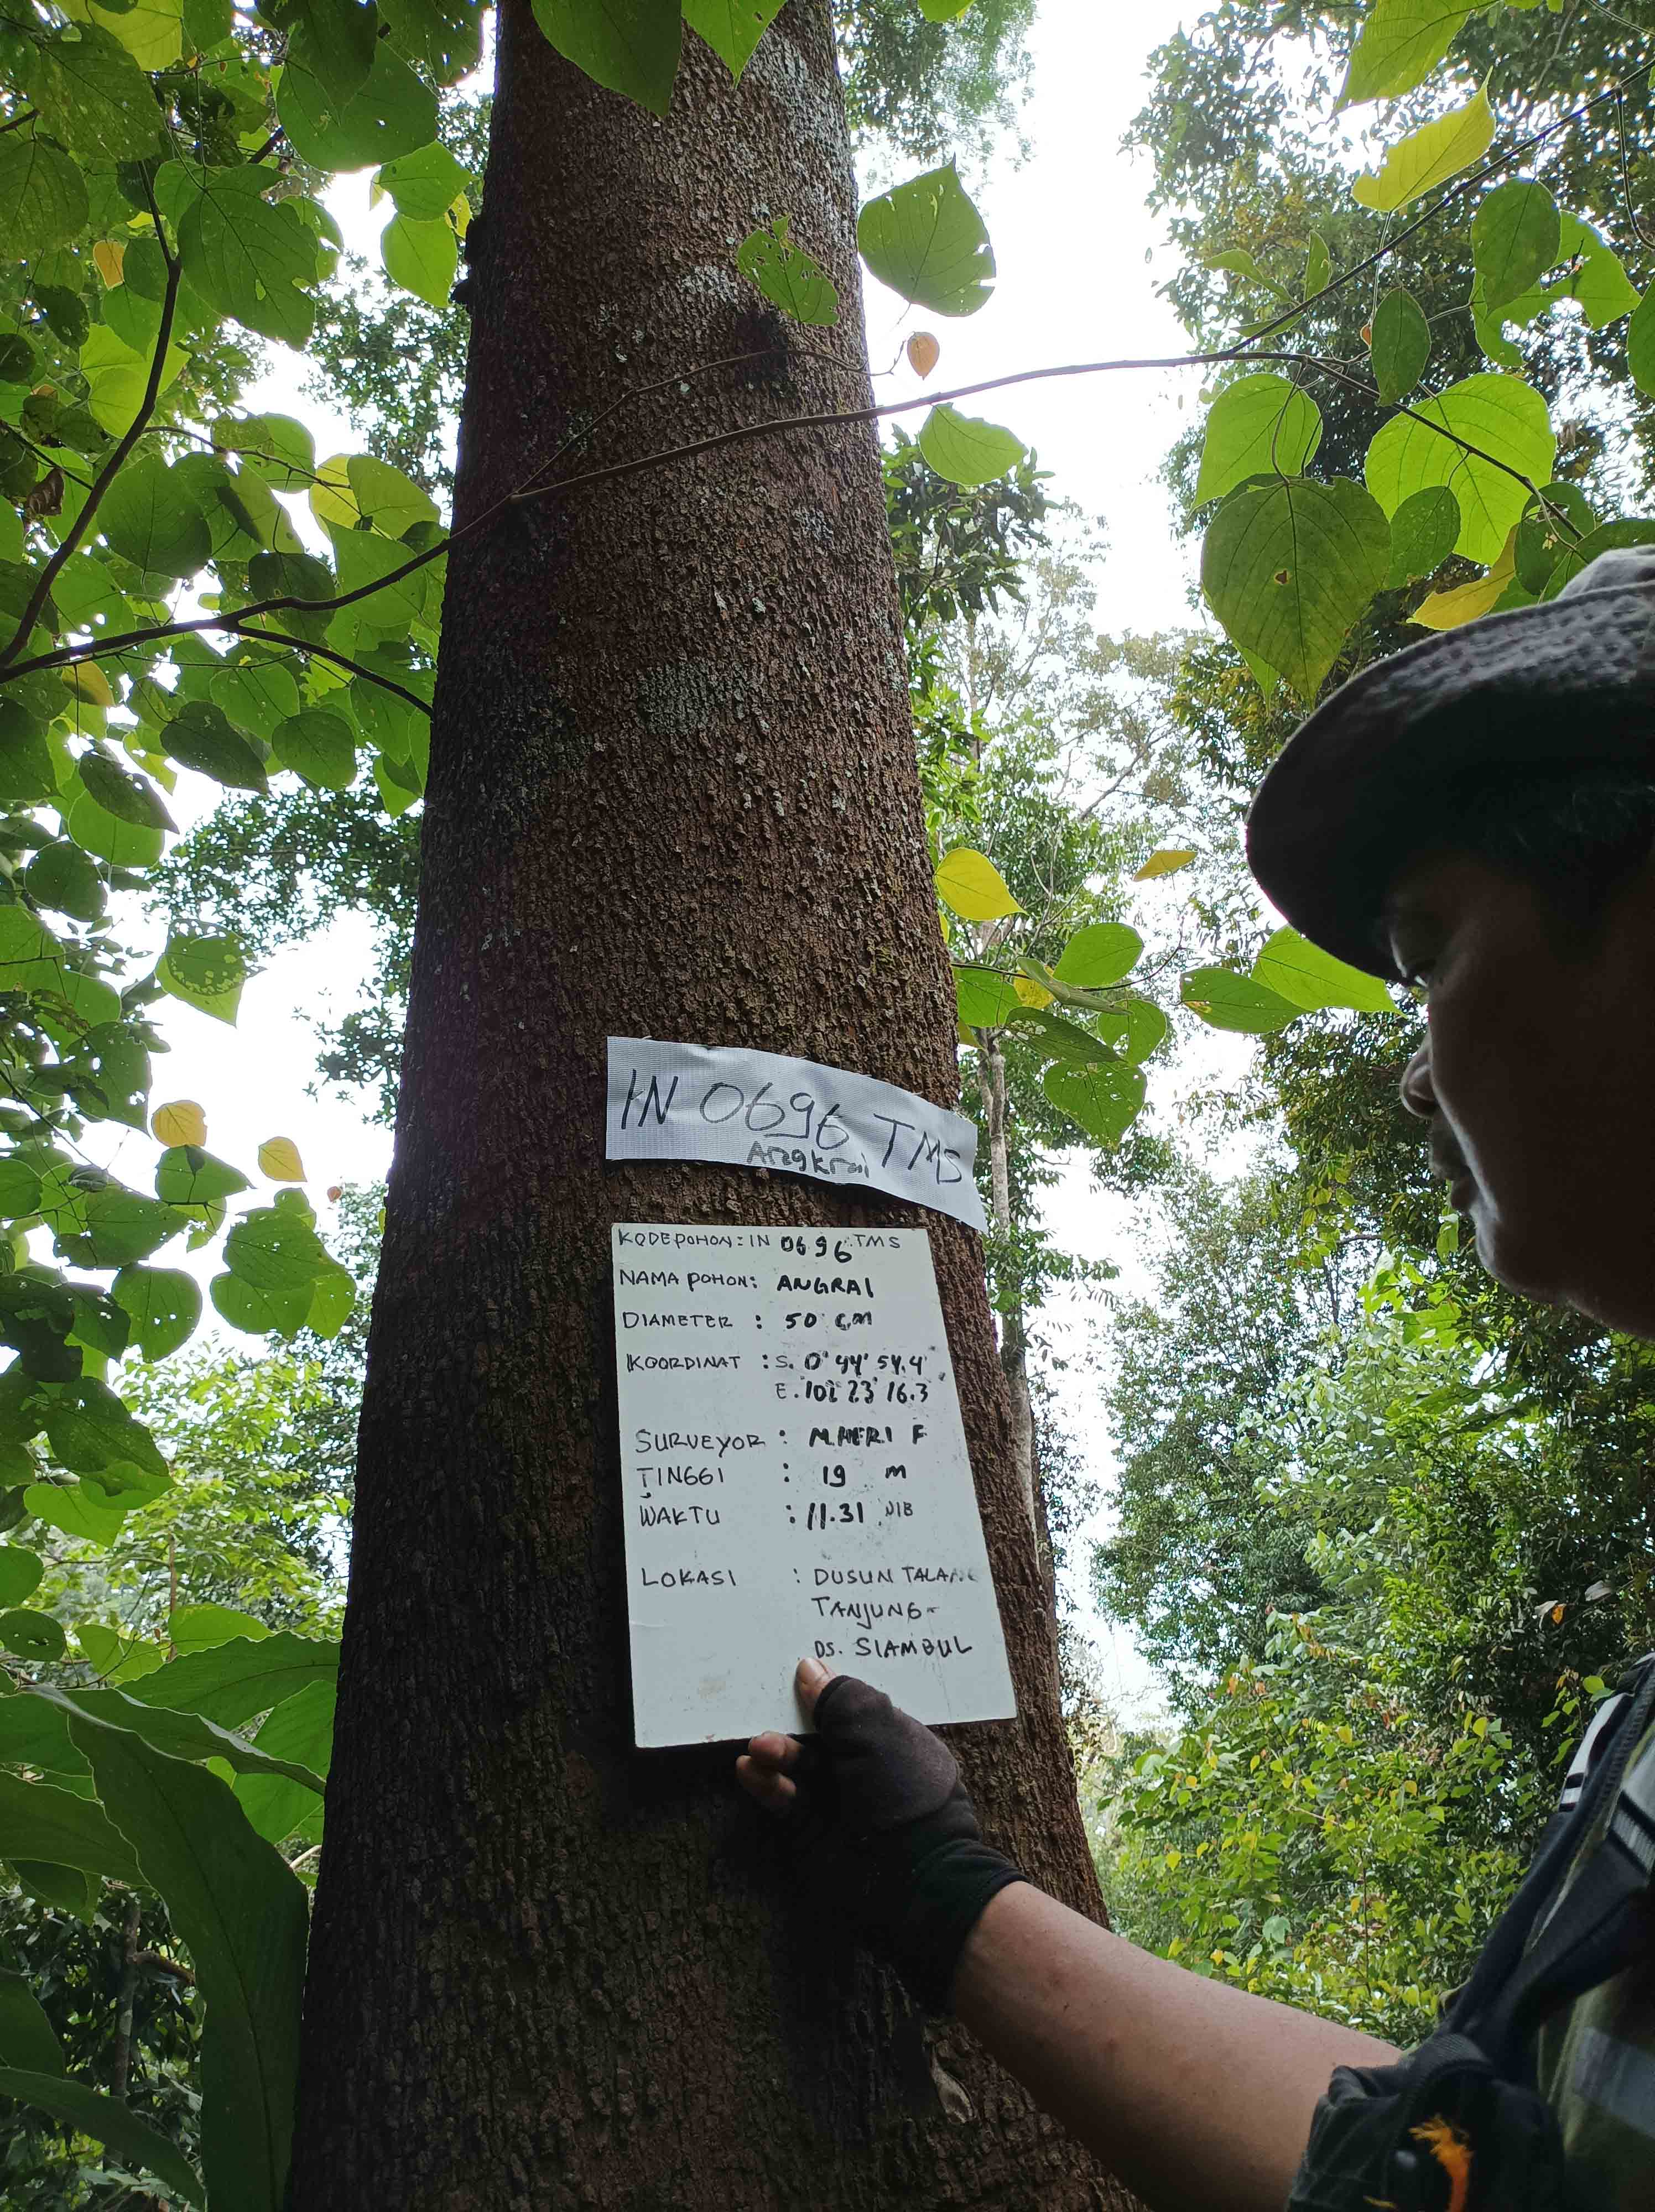 IN 0696 TMS
Angkrai
KODE POHON: IN 0696 TMS
NAMA POHON: ANGRAI
DIAMETER : 50 CM
KOORDINAT : S. 0° 44' 54.4"
E. 102° 23' 16.3
SURVEYOR : M.HERI F
TINGGI : 19 M
WAKTU : 11.31 WIB
LOKASI : DUSUN TALANG
TANJUNG-
DS. SIAMBUL